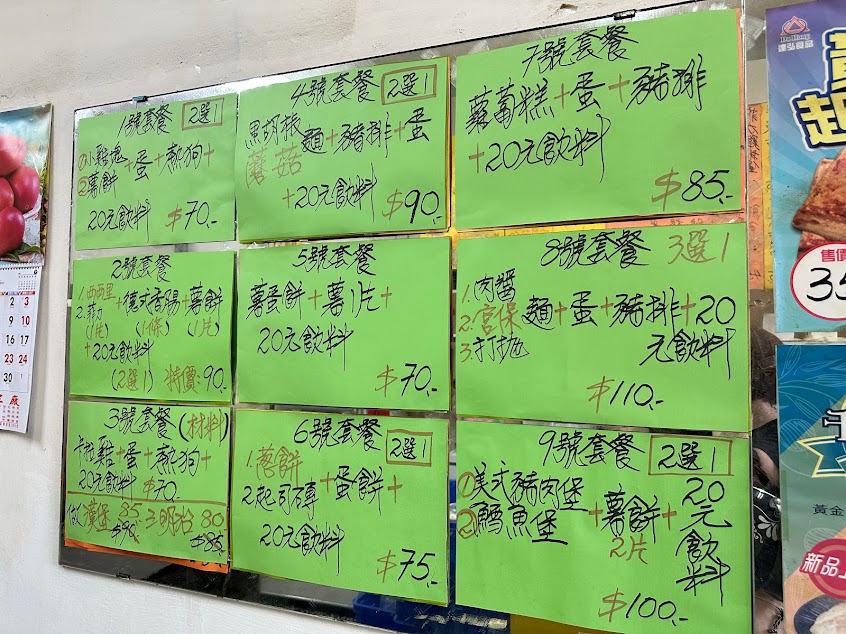 1號套餐 2選1
①小雞塊
②薯餅
+蛋+熱狗+
20元飲料 $70.-
2號套餐
1.
2.
(1片)
+德式香腸+薯餅
(1條) (1片)
+20元飲料
(2選1) 特價:90.-
3號套餐(材料)
卡啦雞+蛋+熱狗+
20元飲料 $70.
做漢堡 85 三明治 80
$90 $85
4號套餐 2選1
黑胡椒
蘑菇
麵+豬排+蛋
+20元飲料 $90.-
5號套餐
薯蛋餅+薯1片+
20元飲料
$70.-
6號套餐 2選1
1.蔥餅
2.起司磚
+蛋餅+
20元飲料
$75.-
7號套餐
蘿蔔糕+蛋+豬排
+20元飲料
$85.-
8號套餐 3選1
1.肉醬
2.宮保
3.打拋
麵+蛋+豬排+20
元飲料
$110.-
9號套餐 2選1
①美式豬肉堡
②鱈魚堡
+薯餅+
2片
20元飲料
$100.-
2 3
9 10
16 17
23 24
30
達弘食品
起
售價
35
黃金
新品上